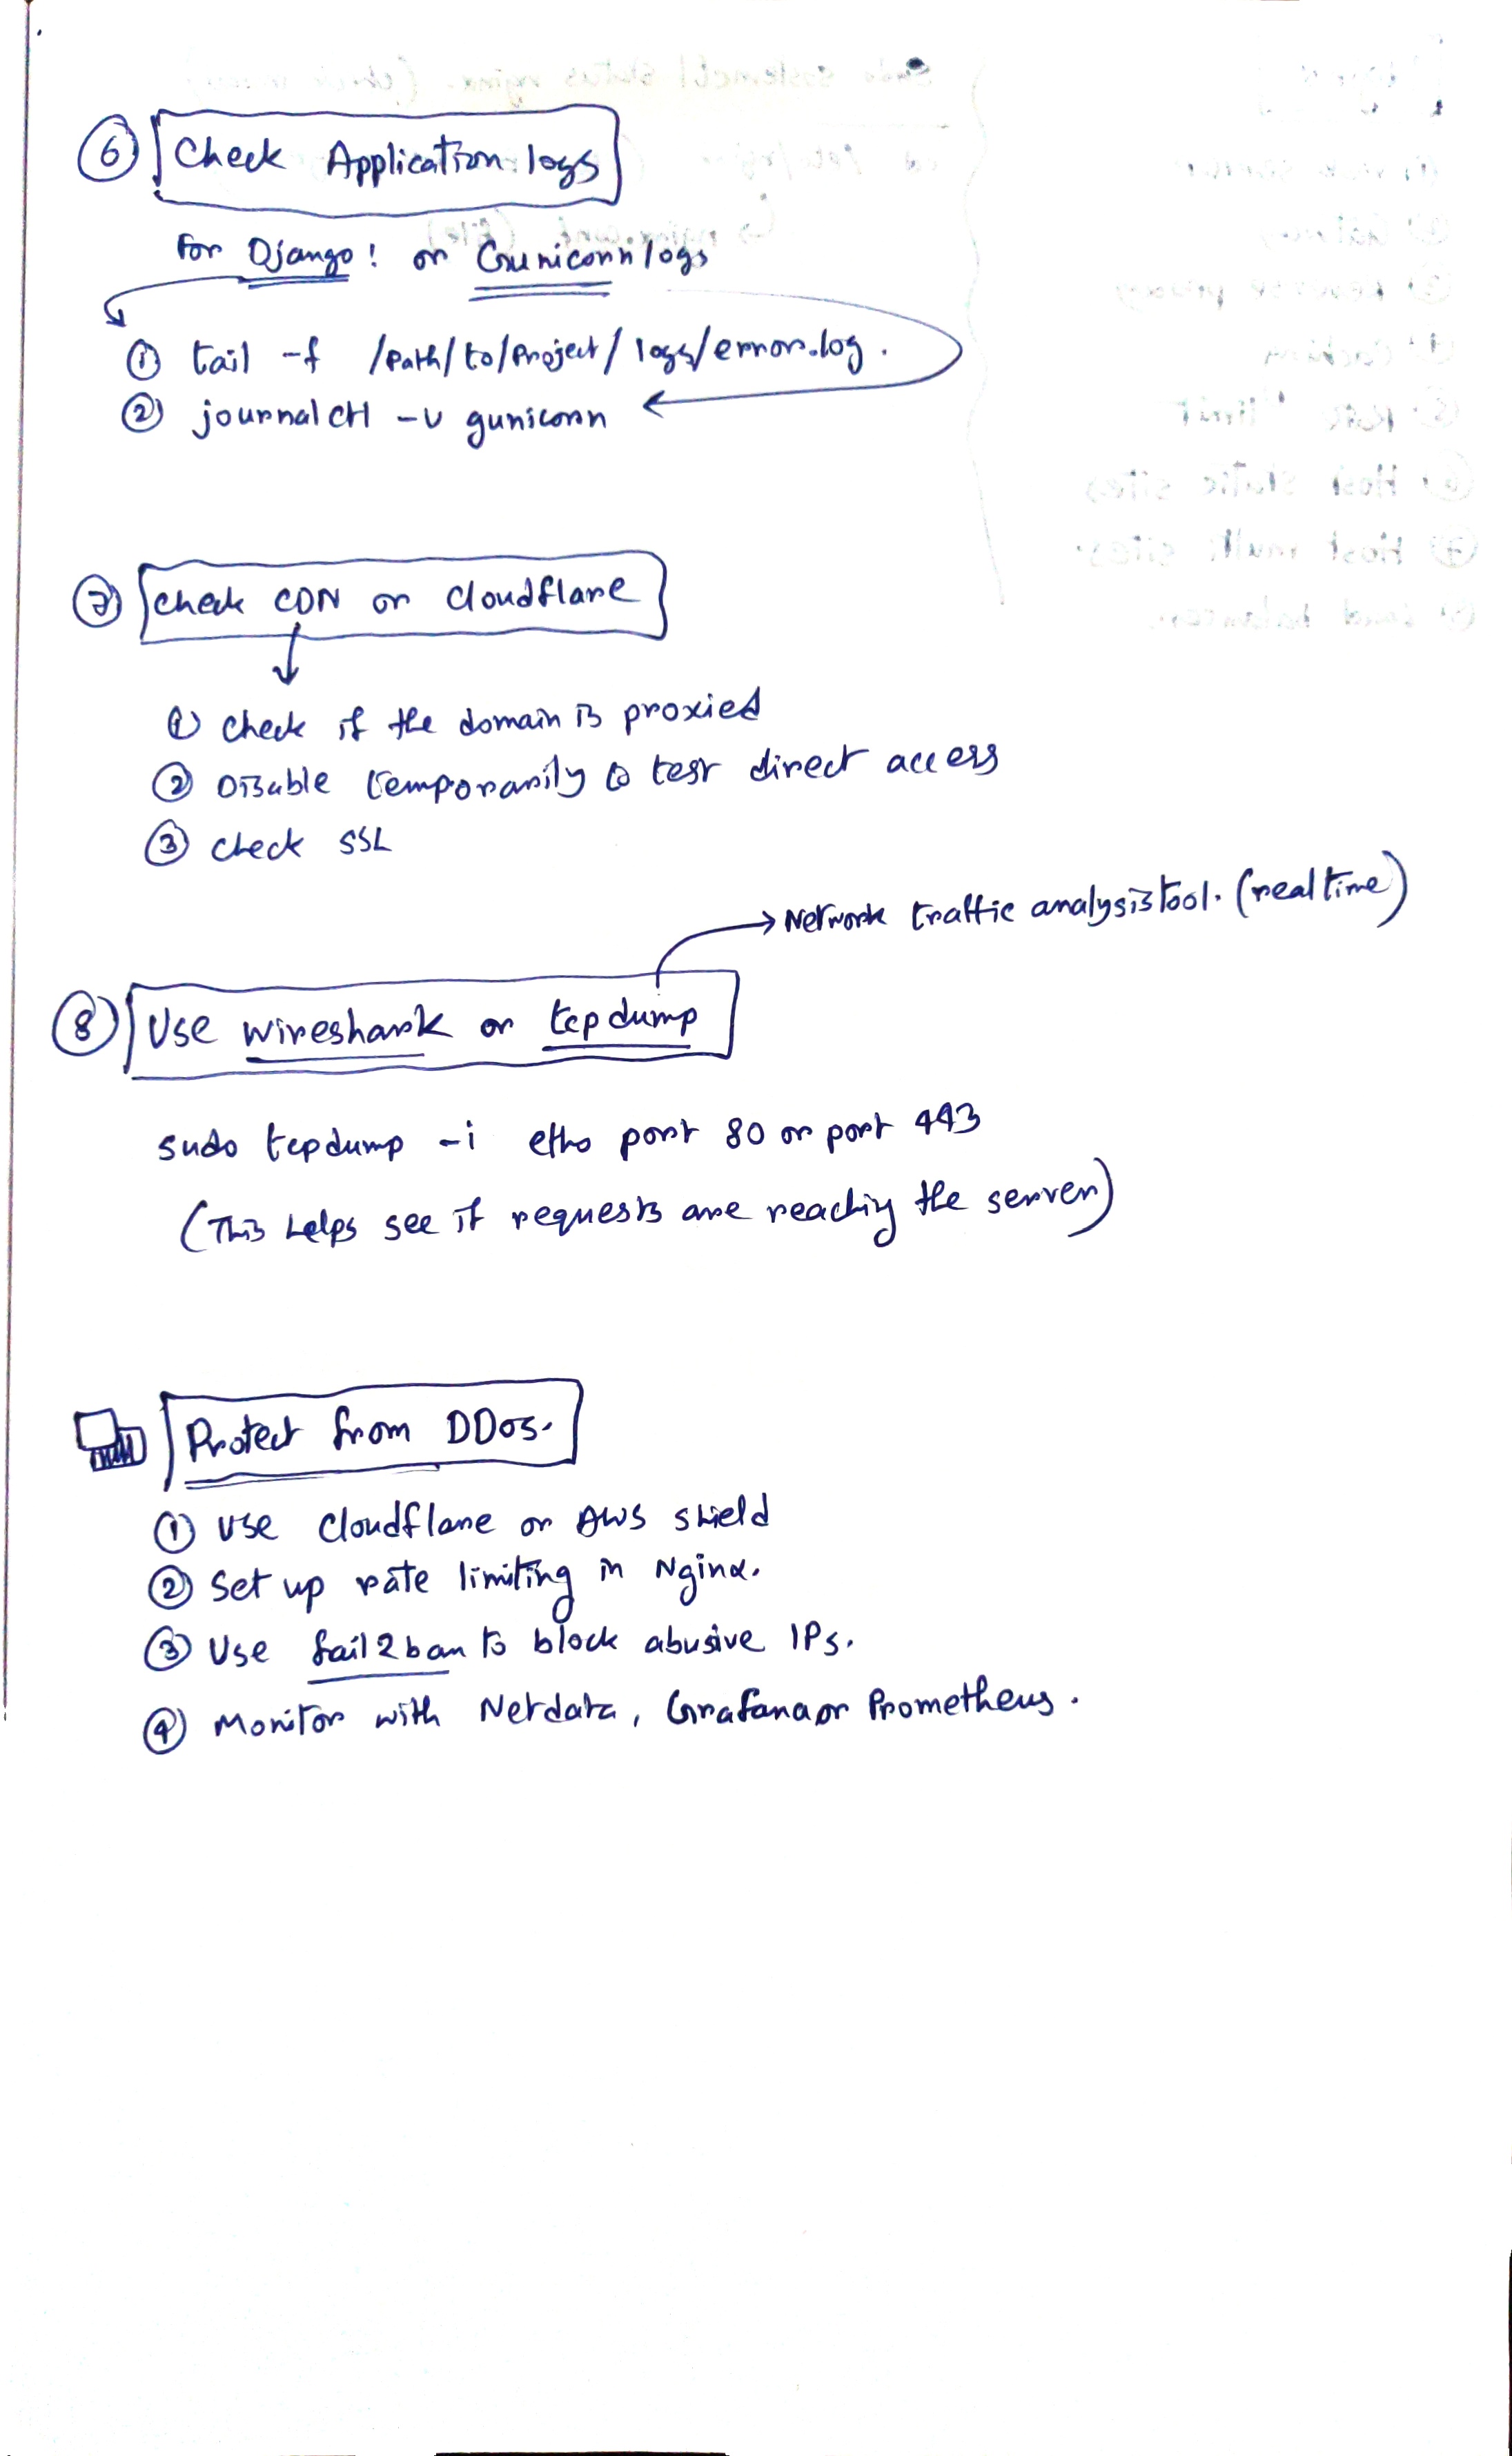 ⑥ Check Application logs
For Django! or Gunicorn logs
① tail -f /Path/to/Project/logs/error.log.
② journalctl -u gunicorn
⑦ Check CDN or Cloudflare
① Check if the domain is proxied
② Disable temporarily to test direct access
③ Check SSL
→ Network traffic analysis tool. (real time)
⑧ Use wireshark or tcpdump
sudo tcpdump -i eth0 port 80 or port 443
(This helps see if requests are reaching the server)
Protect from DDos.
① Use Cloudflare or AWS shield
② Set up rate limiting in Nginx.
③ Use fail2ban to block abusive IPs.
④ Monitor with Netdata, Grafana or Prometheus.